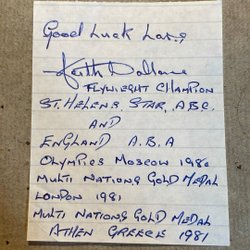 Good Luck Lars
Keith Wallace
FLYWIEGHT CHAMPION
ST. HELENS, STAR, A.B.C.
AND
ENGLAND A.B.A
OLYMPICS MOSCOW 1980
MULTI NATIONS GOLD MEDAL
LONDON 1981
MULTI NATIONS GOLD MEDAL
ATHEN GREECE 1981